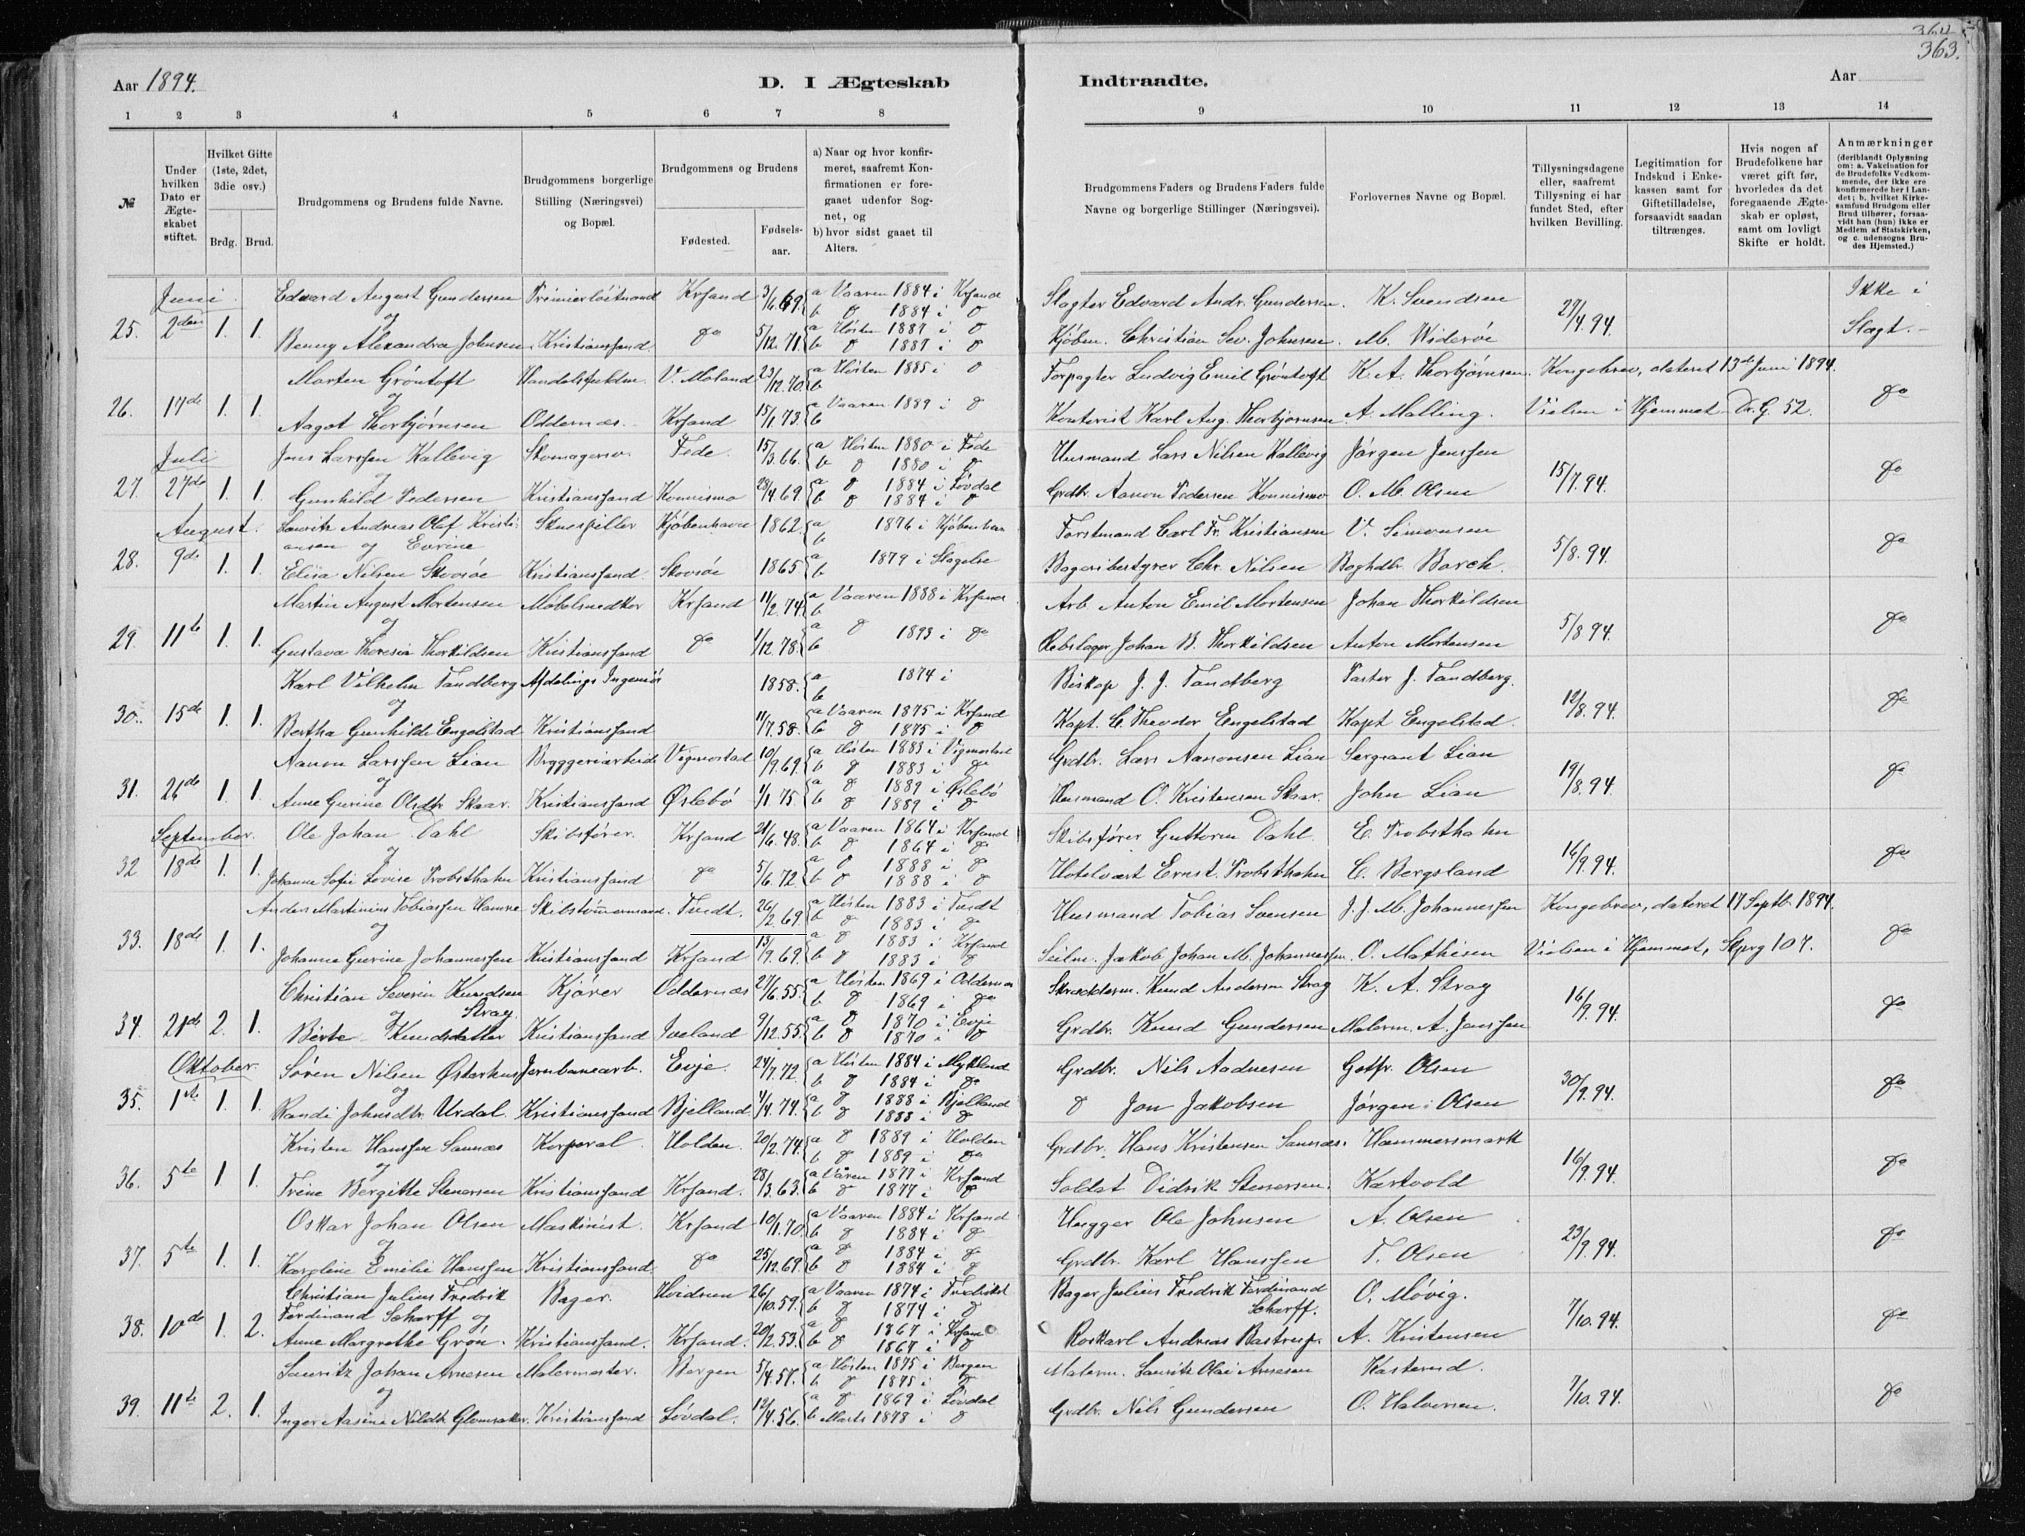 364
363.
Aar 1894.
D. I Ægteskab Indtraadte.
Aar
1 2 3 4 5 6 7 8 9 10 11 12 13 14
№
Under hvilken Dato er Ægteskabet stiftet.
Hvilket Gifte (1ste, 2det, 3die osv.)
Brdg. Brud.
Brudgommens og Brudens fulde Navne.
Brudgommens borgerlige Stilling (Næringsvei) og Bopæl.
Brudgommens og Brudens
Fødested. Fødselsaar.
a) Naar og hvor konfirmeret, saafremt Konfirmationen er foregaaet udenfor Sognet, og
b) hvor sidst gaaet til Alters.
Brudgommens Faders og Brudens Faders fulde Navne og borgerlige Stillinger (Næringsvei).
Forlovernes Navne og Bopæl.
Tillysningsdagene eller, saafremt Tillysning ei har fundet Sted, efter hvilken Bevilling.
Legitimation for Indskud i Enkekassen samt for Giftetilladelse, forsaavidt saadan tiltrænges.
Hvis nogen af Brudefolkene har været gift før, hvorledes da det foregaaende Ægteskab er opløst, samt om lovligt Skifte er holdt.
Anmærkninger
(deriblandt Oplysning om: a. Vakcination for de Brudefolks Vedkommende, der ikke ere konfirmerede her i Landet; b, hvilket Kirkesamfund Brudgom eller Brud tilhører, forsaavidt han (hun) ikke er Medlem af Statskirken, og c. udensogns Brudes Hjemsted.)
Juni Edvard August Gundersen Premierløitnand Krsand 3/6.69. a Vaaren 1884 i Krsand Slagter Edvard Andr. Gundersen. K. Svendsen 29/4.94. Ikke i
og b do 1884 i do
25. 2den 1. 1. Benny Alexandra Johnsen. Kristianssand do 5/12.71. a Høsten 1887 i do Kjøbm. Christian Sev. Johnsen. M. Widerøe Slægt.
b do 1887 i do
Marten Grøntoft Handelsfuldm. V. Moland 23/12.70. a Høsten 1885 i do Forpagter Ludvig Emil Grøntoft K. A. Thorbjørnsen. Kongebrev, dateret 13de Juni 1894.
og b
26. 17de 1. 1. Aagot Thorbjørnsen Oddernæs. Krsand 15/1.73. a Vaaren 1889 i do Kontorist Karl Aug. Thorbjørnsen A. Malling. Vielsen i Hjemmet Dr. G. 52. do
b
Juli Jens Larssen Kallevig Skomagersv. Fede. 15/3.66. a Høsten 1880 i Fede Husmand Lars Nilsen Kallevig Jørgen Jenssen 15/7.94. do
og b do 1880 i do
27. 27de 1. 1. Gunhild Pedersen Kristianssand Konnismo 28/4.69 a do 1884 i Løvdal Grdbr. Aanon Pedersen Konnismo O. M. Olsen
b do 1884 i do
August. Lauritz Andreas Olaf Kristi- Skuespiller Kjøbenhavn 1862. a 1876 i Kjøbenhavn Forstmand Carl Fr. Kristiansen V. Simonsen 5/8.94. do
ansen og Eorine b
28. 9de 1. 1. Elisa Nilsen Skovsøe Kristianssand. Skovsøe 1865 a 1879 i Slagelse Bageribestyrer Chr. Nilsen Boghdlr. Barch.
b
Martin August Mortensen Møbelsnedker Krsand 11/2.74. a Vaaren 1888 i Krsand Arb. Anton Emil Mortensen Johan Thorkildsen 5/8.94. do
og b
29. 11te 1. 1. Gustava Theresia Thorkildsen Kristianssand do 1/12.78. a do 1893 i do Rebslager Johan B. Thorkildsen Anton Mortensen
b
Karl Vilhelm Tandberg Afdelings Ingeniør 1858. a 1874 i Biskop J. J. Tandberg Pastor J. Tandberg. 12/8.94. do
og b
30. 15de 1. 1. Bertha Gunhilde Engelstad Kristianssand 11/7.58. a Vaaren 1875 i Krsand Kapt. C. Theodor Engelstad Kapt Engelstad.
b do 1875 i do
Aanon Larssen Lian Bryggeriarbeider Vigmostad 10/9.69. a Høsten 1883 i Vigmostad Grdbr. Lars Aanonsen Lian Sergeant Lian 19/8.94. do
og b do 1883 i do
31. 26de 1. 1. Anne Gurine Olsdtr Skaar. Kristianssand Øslebø 1/1.75. a do 1889 i Øslebø Husmand O. Kristensen Skaar. John Lian
b do 1889 i do
September. Ole Johan Dahl Skibsfører. Krsand 21/6.48. a Vaaren 1864 i Krsand Skibsfører Guttorm Dahl. E. Probsthahn 16/9.94. do
og b do 1864 i do
32 18de 1. 1. Johanne Sofie Lovise Probsthahn Kristianssand do 5/6.72. a do 1888 i do Hotelvært Ernst. Probsthahn C. Bergsland
b do 1888 i do
Anders Martinius Tobiassen Hamre Skibstømmermand. Tvedt. 26/2.69. a Høsten 1883 i Tvedt Husmand Tobias Svensen J. J. M. Johannessen Kongebrev, dateret 17 Septb. 1894.
og b do 1883 i do
33. 18de 1. 1. Johanne Gurine Johannessen Kristianssand Krsand 13/9.69. a do 1883 i Krsand Seilm. Jakob Johan M. Johannessen. O. Mathisen Vielsen i Hjemmet, Skprg 107. do
b do 1883 i do
Christian Severin Knudsen Kjører Oddernæs 27/6.55. a Høsten 1869 i Oddernæs Skræderm. Knud Andersen Strag K. A. Strag 16/9.94. do
og Strag. b do 1869 i do
34. 21de 2. 1. Berte Knudsdatter Kristianssand Iveland 9/12.55. a do 1870 i Evje Grdbr. Knud Gundersen Malerm. A. Janssen
b do 1870 i do
Oktober. Søren Nilsen Østerhus Jernbanearb. Evje. 24/7.72. a Høsten 1884 i Mykland Grdbr. Nils Aadnesen Gotfr. Olsen 30/9.94. do
og b do 1884 i do
35. 1ste 1. 1. Randi Johnsdtr. Urdal. Kristianssand Bjelland 4/4.74. a do 1888 i Bjelland do Jon Jakobsen Jørgen Olsen
b do 1888 i do
Kristen Hanssen Sannæs Korporal. Holden. 20/2.74. a do 1889 i Holden Grdbr. Hans Kristensen Sannæs. Hammersmark 16/9.94. do
og b do 1889 i do
36. 5te 1. 1. Trine Bergitte Stenersen Kristianssand Krsand. 28/3.63. a Våren 1877 i Krsand Soldat Didrik Stenersen. Kartvold
b do 1877 i do
Oskar Johan Olsen Maskinist. Krsand 10/1.70. a Vaaren 1884 i Krsand Hugger Ole Johnsen A. Olsen 23/9.94. do
og b do 1884 i do
37. 5te 1. 1. Karoline Emilie Hanssen Kristianssand do 25/12.69. a do 1884 i do Grdbr. Karl Hanssen T. Olsen
b do 1884 i do
Christian Julius Fredrik Bager. Hvidsten 26/10.59. a Vaaren 1874 i Fredrikst Bager Julius Fredrik Ferdinand O. Møvig. 7/10.94. do
Ferdinand Scharff og b do 1874 i do Scharff.
38. 10de 1. 2. Anne Margrethe Grøn. Kristianssand. Krsand. 20/2.53. a do 1867 i Krsand Roskarl Andreas Bastrup. A. Kristensen
b do 1867 i do
Lauritz Johan Arnesen Malermester. Bergen 5/4.57. a Høsten 1875 i Bergen Malerm. Lauritz Olai Arnesen Kasterud. 7/10.94. do
og b do 1875 i do
39. 11te 2. 1. Inger Aasine Nilsdtr Glomsaker. Kristianssand Løvdal. 12/4.56. a do 1869 i Løvdal Grdbr. Nils Gundersen O. Halvorsen.
b Marts 1878 i do